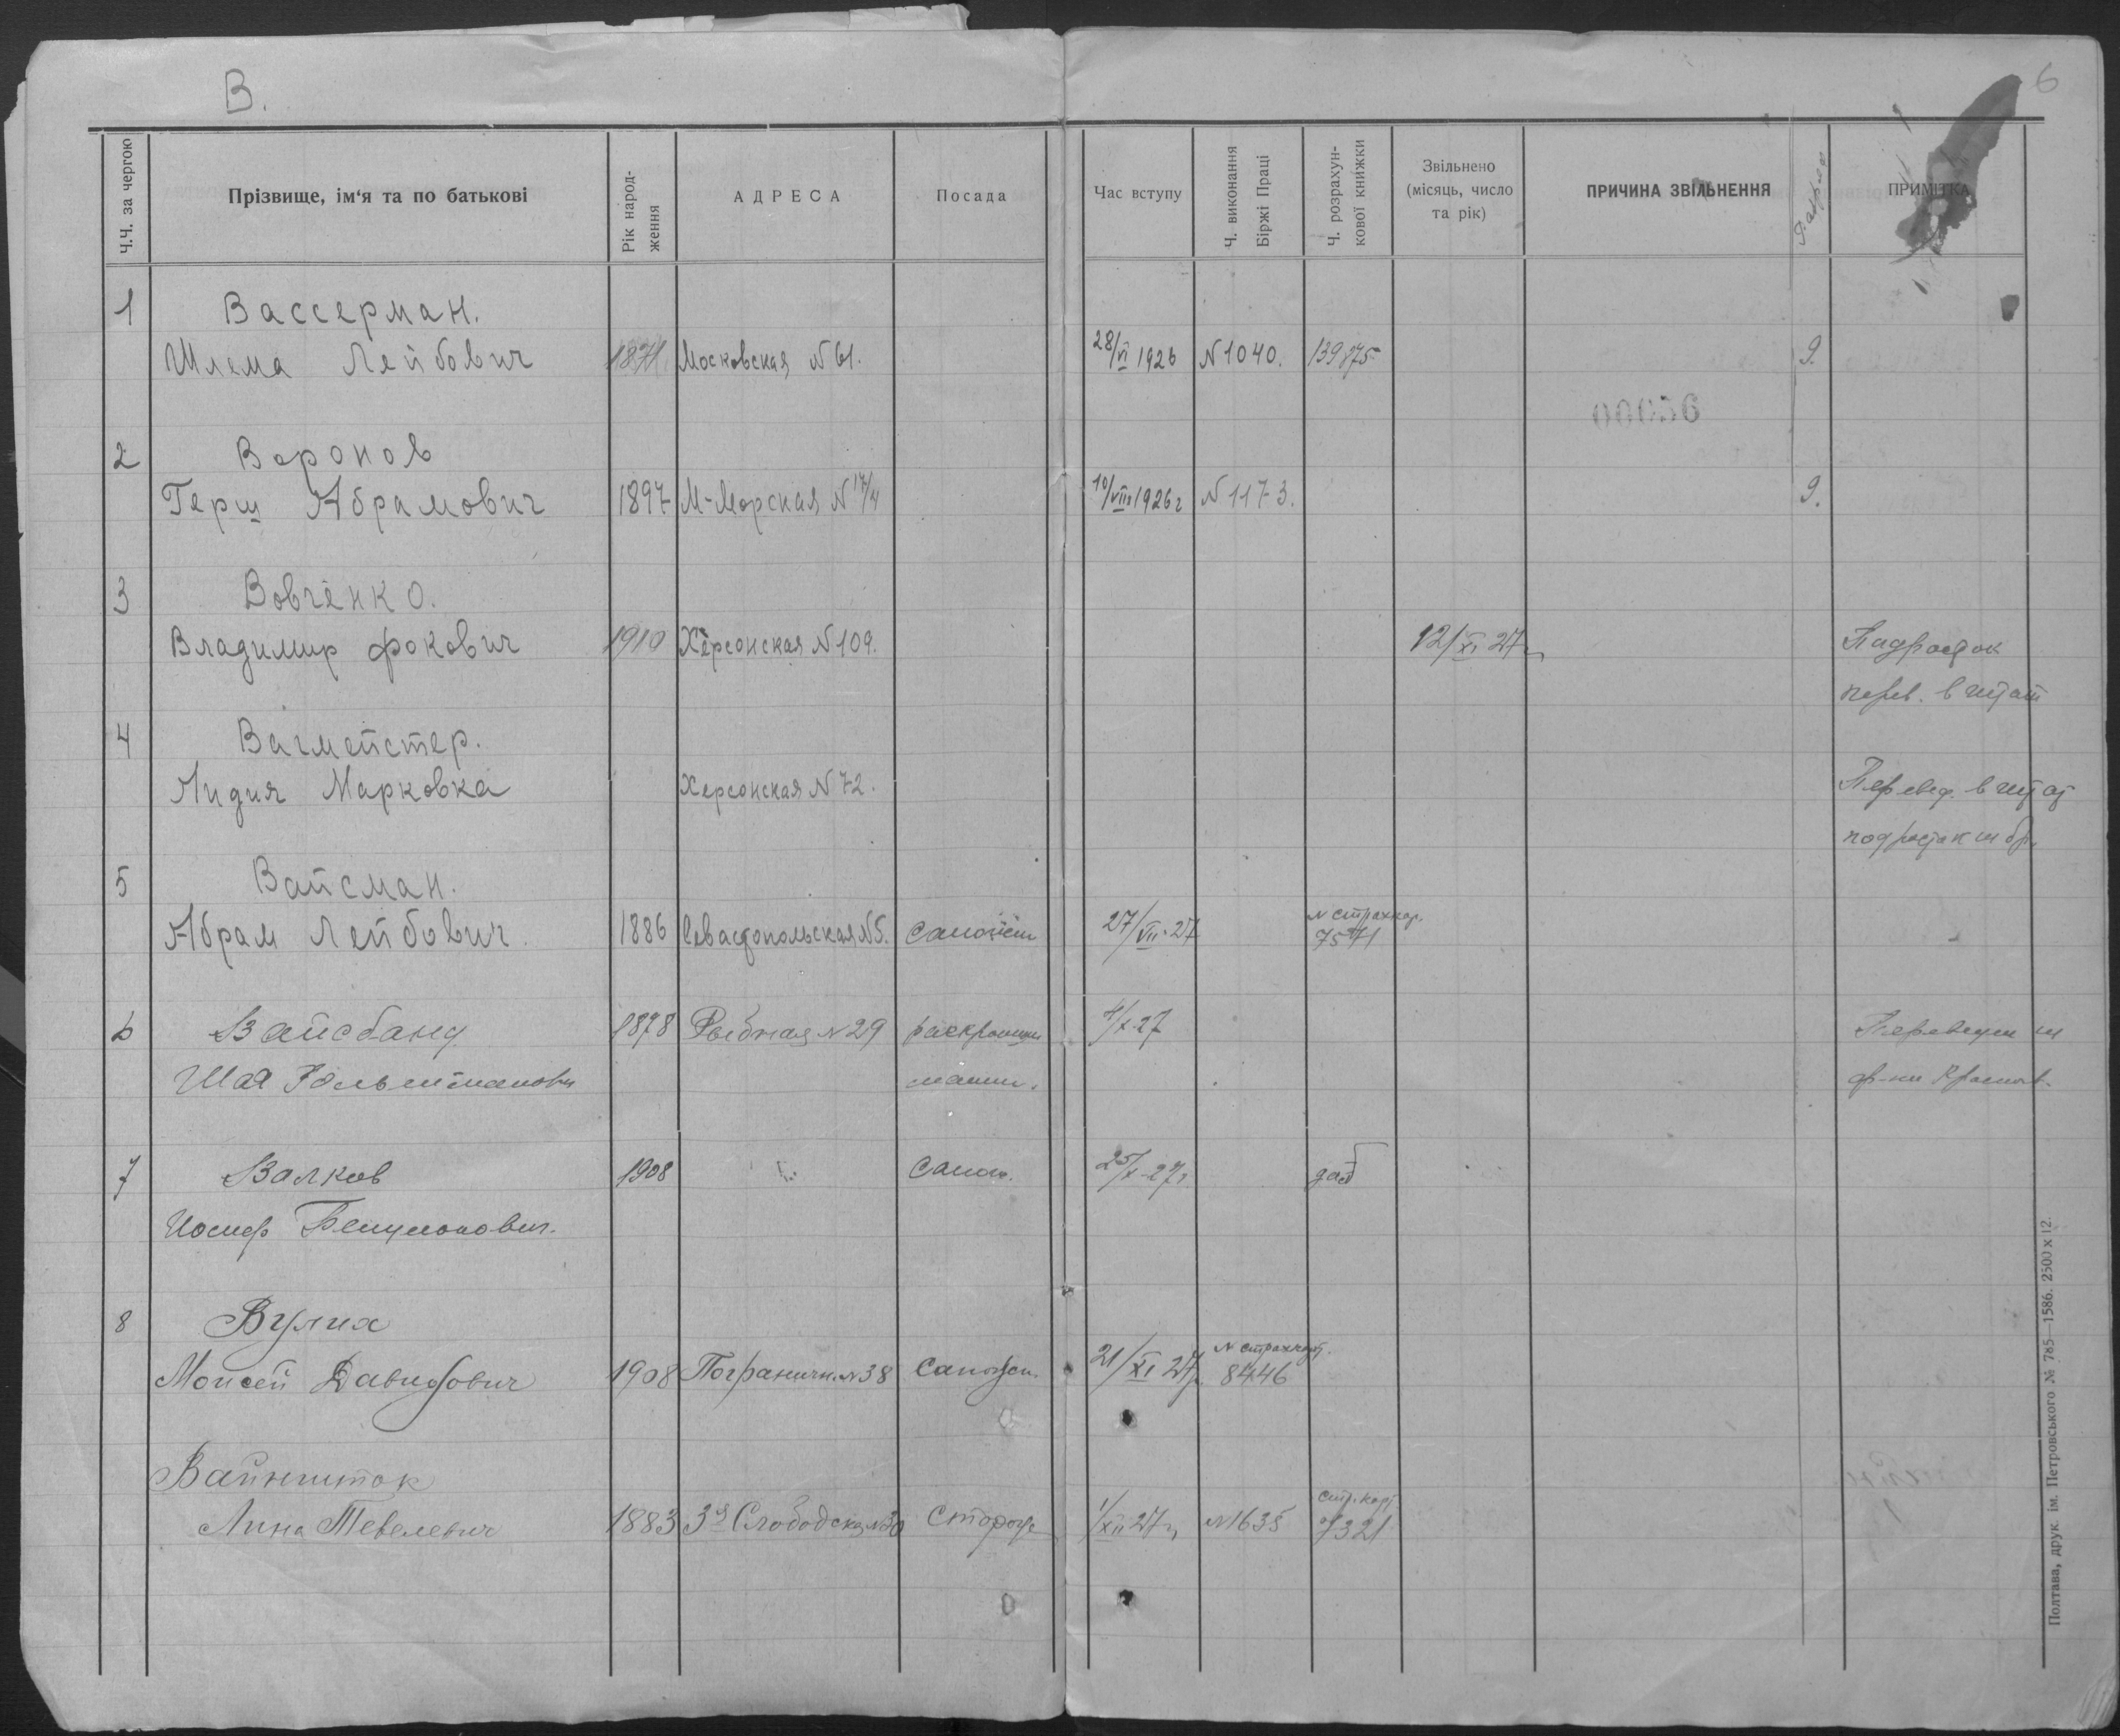 В.
6
Ч.Ч. за чергою
Прізвище, ім'я та по батькові
Рік народ-
ження
АДРЕСА
Посада
Час вступу
Ч. виконання
Біржі Праці
Ч. розрахун-
кової книжки
Звільнено
(місяць, число
та рік)
ПРИЧИНА ЗВІЛЬНЕННЯ
ПРИМІТКА
1 Вассерман.
Шлема Лейбович 1871 Московская №61. 28/VI 1926 №1040. 139875 9.
00056
2 Воронов
Герш Абрамович 1897 М-Морская №17/4 10/VIII 1926г №1173. 9.
3 Вовченко.
Владимир Фокович 1910 Херсонская №109. 12/XI 27г Падросток
перев. в штат
4 Вагмейстер.
Лидия Марковка Херсонская №72. Перевед. в штат
5 Вайсман.
Абрам Лейбович. 1886 Севастопольская №5. 27/VII-27 № страхкар.
7571
6 Вайсбанд 1878 Рыбная №29 4/X-27
Шая
7 Валков 1908 Сапож. 25/X-27г
Иосиф
8 Вулих
Моисей Давидович 1908 Погранични. №38 21/XI 27г. 8446
Вайншток
Лина Тевелевич 1883 3я Слободская №30 Сторож 1/XII 27г №1635 стр.карт
7321
Полтава, друк. ім. Петровського № 785—1586. 2500 х 12.